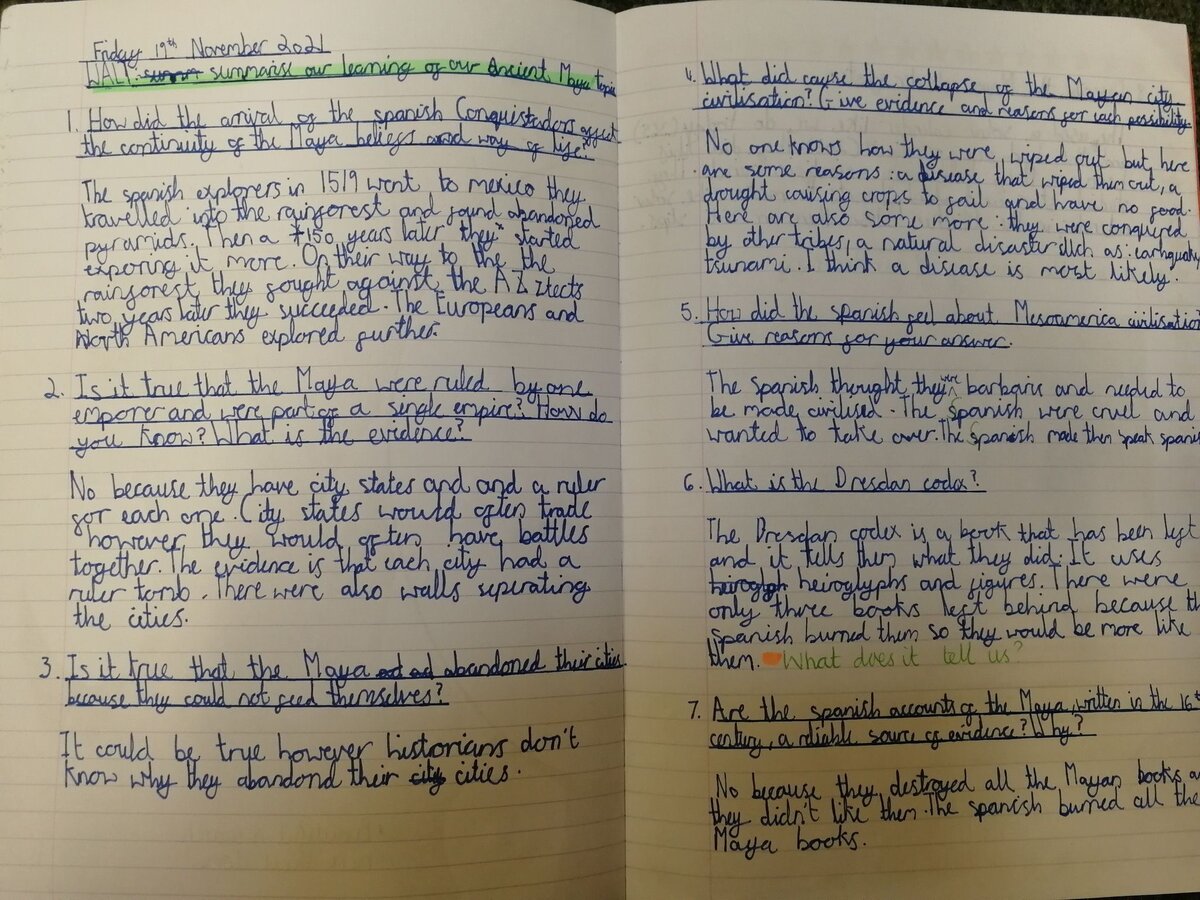 Friday 19th November 2021
WALT: summ summarise our learning of our Ancient Maya topic
1. How did the arrival of the spanish Conquistadors affect
the continuity of the Maya beliefs and way of life?
The spanish explorers in 1519 went to mexico they
travelled into the rainforest and found abandoned
pyramids. Then a 150 years later they started
exporing it more. On their way to the the
rainforest they fought against the AZ ztects
two years later they succeeded. The Europeans and
North Americans explored further.
2. Is it true that the Maya were ruled by one
emporer and were part of a single empire? How do
you know? What is the evidence?
No because they have city states and and a ruler
for each one. City states would often trade
however they would often have battles
together. The evidence is that each city had a
ruler tomb. There were also walls seperating
the cities.
3. Is it true that the Maya ad ad abandoned their cities
because they could not feed themselves?
It could be true however historians don't
know why they abandond their city cities.
4. What did cause the collapse of the Mayan city
civilisation? Give evidence and reasons for each possibility
No one knows how they were wiped out but here
are some reasons: a disease that wiped them out, a
drought causing crops to fail and have no food.
Here are also some more: they were conquered
by other tribes, a natural disaster such as: earhquake
tsunami. I think a disease is most likely.
5. How did the spanish feel about Mesoamerica civilisation?
Give reasons for your answer.
The spanish thought they were barbaric and needed to
be made civilised. The Spanish were cruel and
wanted to take over. The Spanish made them speak spanis
6. What is the Dresdan codex?
The Dresdan codex is a book that has been left
and it tells them what they did. It uses
heiroglyph heiroglyphs and figures. There were
only three books left behind because th
spanish burned them so they would be more like
them. What does it tell us?
7. Are the spanish accounts of the Maya, written in the 16th
century, a reliable source of evidence? Why?
No because they destroyed all the Mayan books a
they didn't like them. The spanish burned all the
Maya books.